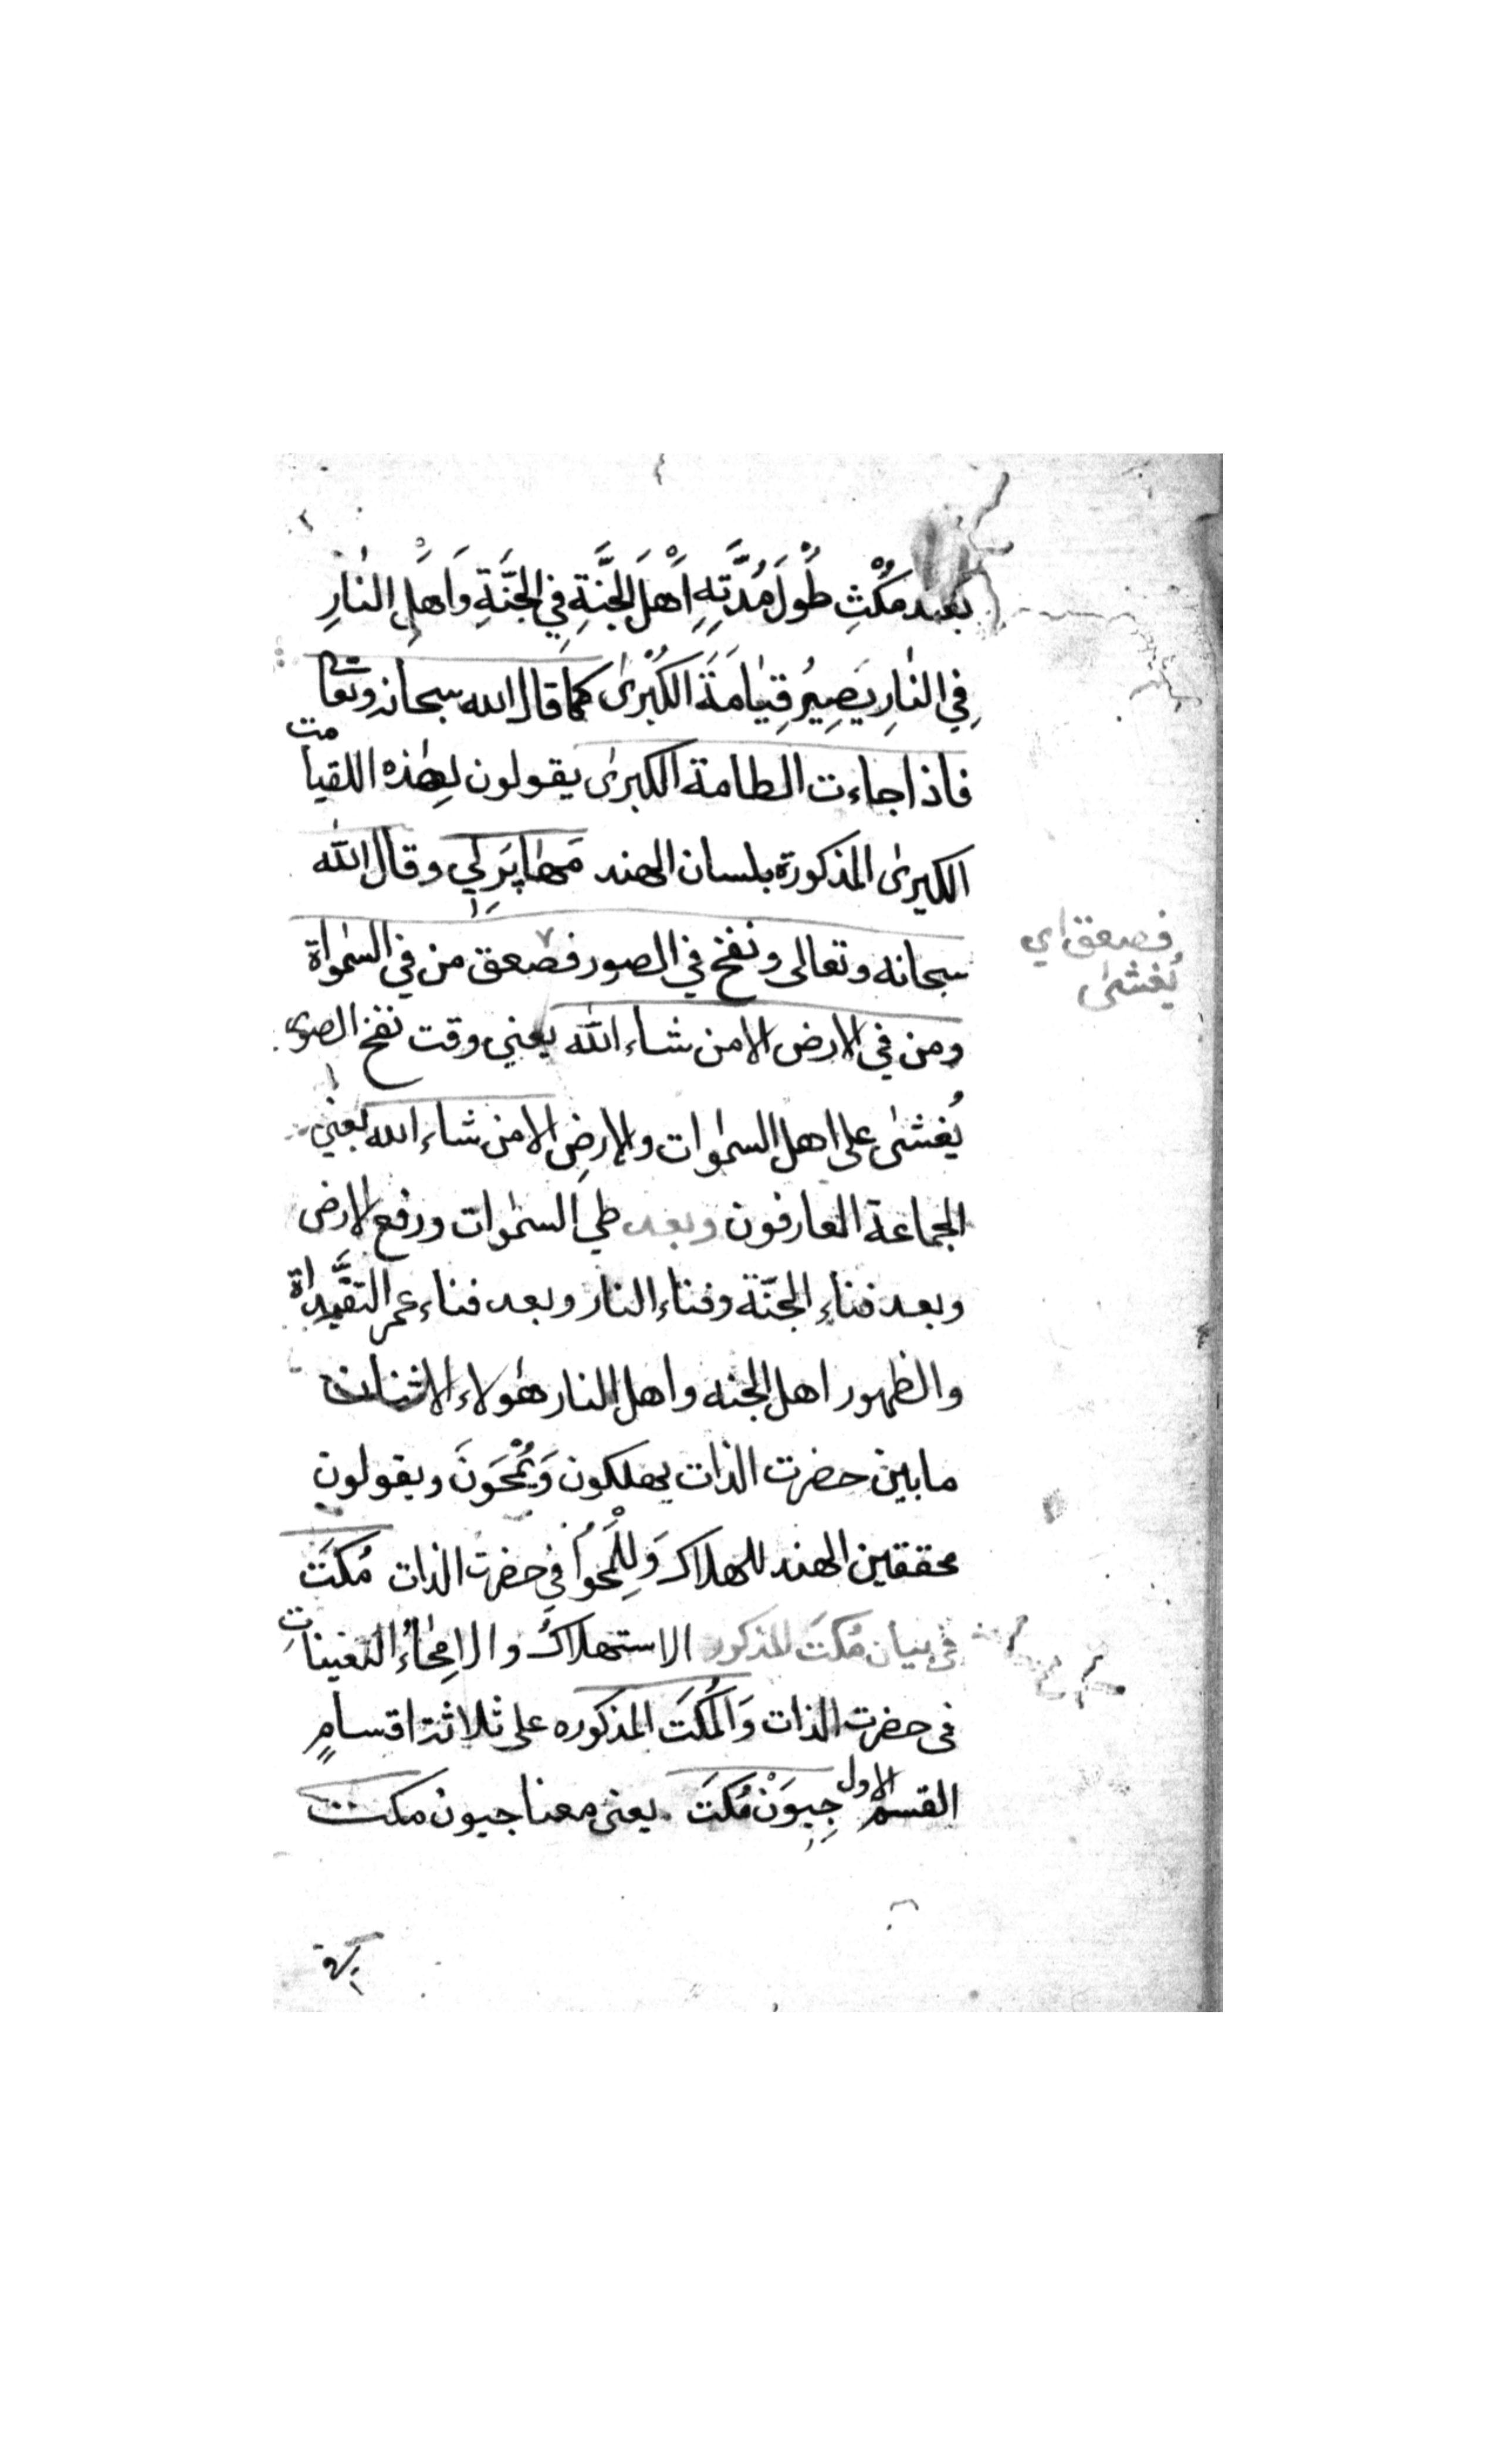 بعد مَكْثِ طُولَ مُدَّتِهِ اَهْلَ الجَنَّةِ فِي الجَنَّةِ وَاَهْلِ النَّارِ
فِي النَّارِ يَصِيرُ قِيَامَةَ الكُبْرىٰ كما قال الله سبحانه وتعا
فاذا جاءت الطامة الكبرىٰ يقولون لِهٰذه اللقيامت
الكبرىٰ المذكورة بلسان الهند مَهَاپَرلِي وقال الله
سبحانه وتعالى ونفخ في الصور فصعق من في السمٰواة
فصعق اي
يُغشىٰ
ومن في الارض الا من شاء الله يعني وقت نفخ الصور
يُغشىٰ على اهل السمٰوات والارضِ الا من شاء الله يعني
الجماعة العارفون وبعد طي السمٰوات ورفع الارض
وبعد فناءِ الجنّة وفناء النار وبعد فناء عمر التقيُّداة
والظهور اهل الجنه واهل النار هٰولاء الاثنان
ما بين حضرت الذات يهلكون وَيُمْحَوَنَ ويقولون
محققين الهند للهلاك وَلِلْمَحو في حضرت الذات مُكَتَ
في بيان مُكَتَ المذكور الاستهلاكُ والامِحٰاءُ التعيناتِ
في حضرت الذات وَالمُكَتَ المذكوره على ثلاثة اقسامٍ
القسم الاول جِيوَنْ مُكَتَ يعني معنا جيون مكت